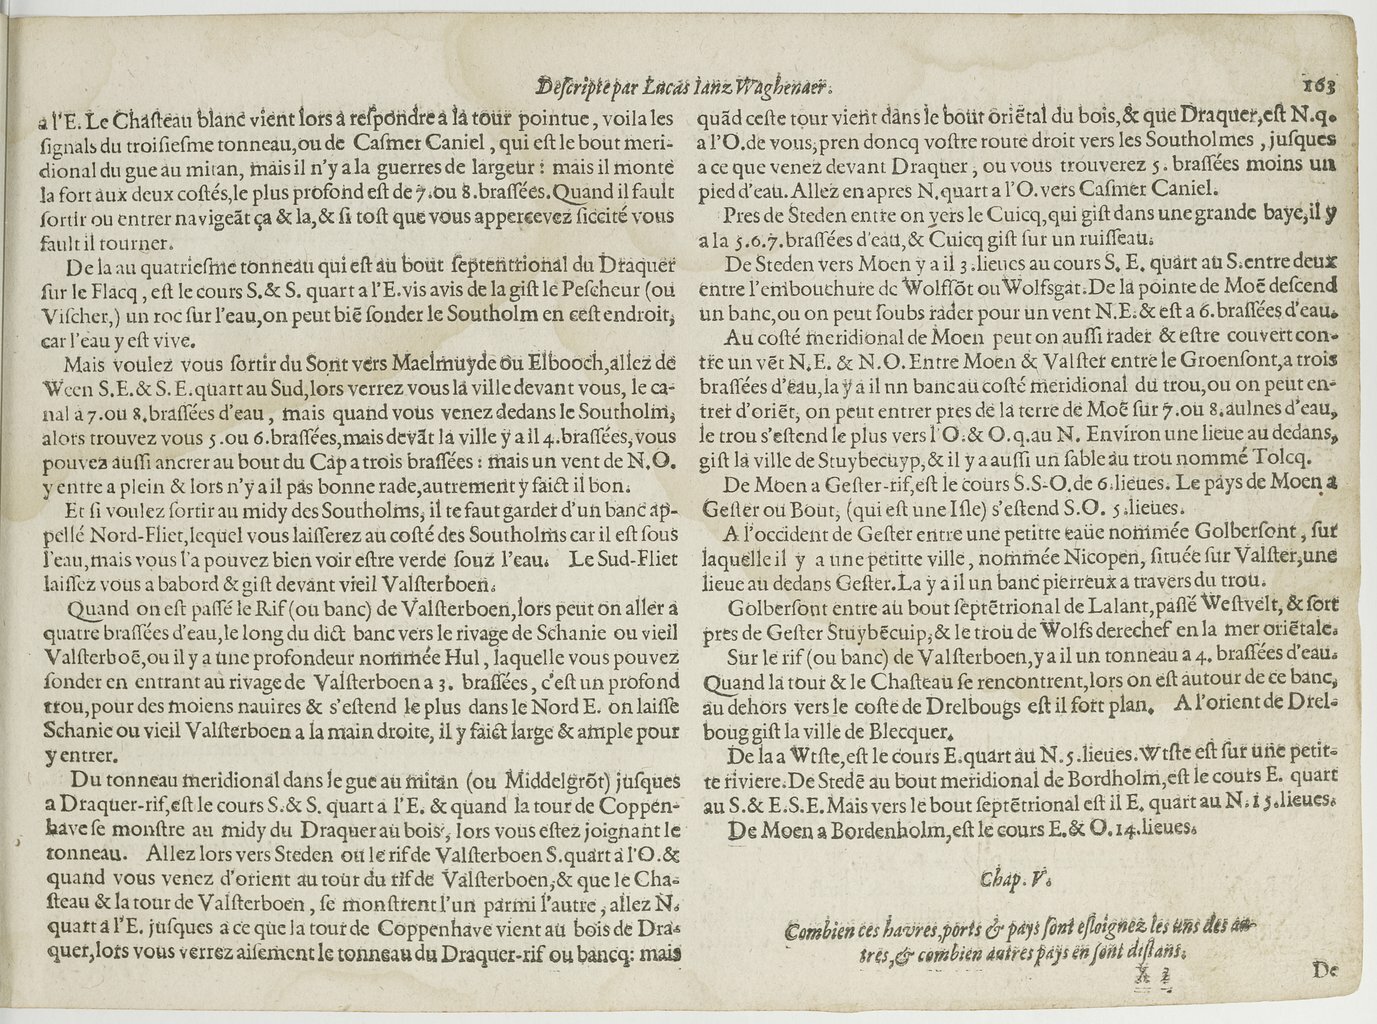 Descripte par Lucas Ianz Waghenaer.
163
a l'E. Le Chasteau blanc vient lors a respondre a la tour pointue, voila les
signals du troisiesme tonneau, ou de Casmer Caniel, qui est le bout meri-
dional du gue au mitan, mais il n'y a la guerres de largeur : mais il monte
la fort aux deux costés, le plus profond est de 7. ou 8. brassées. Quand il fault
sortir ou entrer navigeãt ça & la, & si tost que vous appercevez siccité vous
fault il tourner.
De la au quatriesme tonneau qui est au bout septentrional du Draquer
sur le Flacq, est le cours S. & S. quart a l'E. vis avis de la gist le Pescheur (ou
Vischer,) un roc sur l'eau, on peut biẽ sonder le Southolm en cest endroit,
car l'eau y est vive.
Mais voulez vous sortir du Sont vers Maelmuyde ou Elbooch, allez de
Ween S.E. & S.E. quart au Sud, lors verrez vous la ville devant vous, le ca-
nal a 7. ou 8. brassées d'eau, mais quand vous venez dedans le Southolm,
alors trouvez vous 5. ou 6. brassées, mais devãt la ville y a il 4. brassées, vous
pouvez aussi ancrer au bout du Cap a trois brassées : mais un vent de N.O.
y entre a plein & lors n'y a il pas bonne rade, autrement y faict il bon.
Et si voulez sortir au midy des Southolms, il te faut garder d'un banc ap-
pellé Nord-Fliet, lequel vous laisserez au costé des Southolms car il est sous
l'eau, mais vous l'a pouvez bien voir estre verde souz l'eau. Le Sud-Fliet
laissez vous a babord & gist devant vieil Valsterboen.
Quand on est passé le Rif (ou banc) de Valsterboen, lors peut on aller a
quatre brassées d'eau, le long du dict banc vers le rivage de Schanie ou vieil
Valsterboẽ, ou il y a une profondeur nommée Hul, laquelle vous pouvez
sonder en entrant au rivage de Valsterboen a 3. brassées, c'est un profond
trou, pour des moiens navires & s'estend le plus dans le Nord E. on laisse
Schanie ou vieil Valsterboen a la main droite, il y faict large & ample pour
y entrer.
Du tonneau meridional dans le gue au mitan (ou Middelgrõt) jusques
a Draquer-rif, est le cours S. & S. quart a l'E. & quand la tour de Coppen-
have se monstre au midy du Draquer au bois, lors vous estez joignant le
tonneau. Allez lors vers Steden ou le rif de Valsterboen S. quart a l'O. &
quand vous venez d'orient au tour du rif de Valsterboen, & que le Cha-
steau & la tour de Valsterboen, se monstrent l'un parmi l'autre, allez N.
quart a l'E. jusques a ce que la tour de Coppenhave vient au bois de Dra-
quer, lors vous verrez aisement le tonneau du Draquer-rif ou bancq: mais
quãd ceste tour vient dans le bout oriẽtal du bois, & que Draquer, est N.q.
a l'O. de vous, pren doncq vostre route droit vers les Southolmes, jusques
a ce que venez devant Draquer, ou vous trouverez 5. brassées moins un
pied d'eau. Allez en apres N. quart a l'O. vers Casmer Caniel.
Pres de Steden entre on vers le Cuicq, qui gist dans une grande baye, il y
a la 5.6.7. brassées d'eau, & Cuicq gist sur un ruisseau.
De Steden vers Moen y a il 3. lieues au cours S. E. quart au S. entre deux
entre l'embouchure de Wolfsõt ou Wolfsgat. De la pointe de Moẽ descend
un banc, ou on peut soubs rader pour un vent N.E. & est a 6. brassées d'eau.
Au costé meridional de Moen peut on aussi rader & estre couvert con-
tre un vẽt N.E. & N.O. Entre Moen & Valster entre le Groensont, a trois
brassées d'eau, la y a il nn banc au costé meridional du trou, ou on peut en-
trer d'oriẽt, on peut entrer pres de la terre de Moẽ sur 7. ou 8. aulnes d'eau,
le trou s'estend le plus vers l'O. & O.q. au N. Environ une lieue au dedans,
gist la ville de Stuybecuyp, & il y a aussi un sable au trou nommé Tolcq.
De Moen a Gester-rif, est le cours S.S-O. de 6. lieues. Le pays de Moen a
Gester ou Bout, (qui est une Isle) s'estend S.O. 5. lieues.
A l'occident de Gester entre une petitte eaüe nommée Golbersont, sur
laquelle il y a une petitte ville, nommée Nicopen, située sur Valster, une
lieue au dedans Gester. La y a il un banc pierreux a travers du trou.
Golbersont entre au bout septẽtrional de Lalant, passé Westvelt, & sort
pres de Gester Stuybẽcuip, & le trou de Wolfs derechef en la mer oriẽtale.
Sur le rif (ou banc) de Valsterboen, y a il un tonneau a 4. brassées d'eau.
Quand la tour & le Chasteau se rencontrent, lors on est autour de ce banc,
au dehors vers le coste de Drelbougs est il fort plan. A l'orient de Drel-
boug gist la ville de Blecquer.
De la a Wtste, est le cours E. quart au N. 5. lieues. Wtste est sur une petit-
te riviere. De Stedẽ au bout meridional de Bordholm, est le cours E. quart
au S. & E.S.E. Mais vers le bout septẽtrional est il E. quart au N. 15. lieues.
De Moen a Bordenholm, est le cours E. & O. 14. lieues.
Chap. V.
Combien ces havres, ports & pays sont esloignez les uns des au-
tres, & combien autres pays en sont distans.
X 2
De